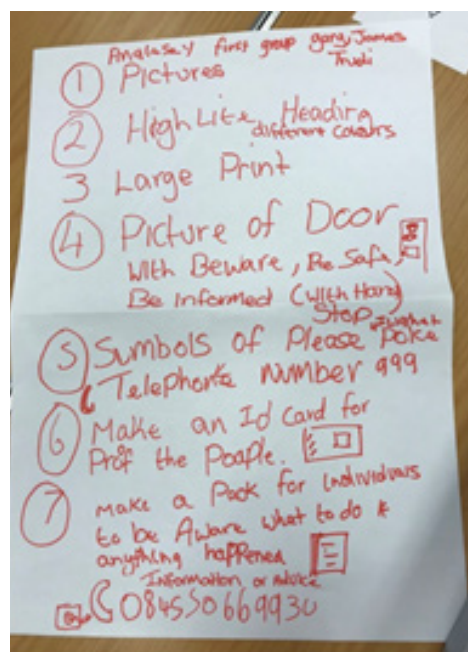 Analasey first group gary James
Trudi
① Pictures
② HighLite Heading
different Colours
3 Large Print
④ Picture of Door
With Beware, Be Safe,
Be Informed (With Hand)
Stop
⑤ Sumbols of Please Police
Telephone number 999
⑥ Make an Id Card for
Prof the Poaple.
⑦ Make a Pack for Individiuals
to be Aware what to do if
anything happened
Information or Advice